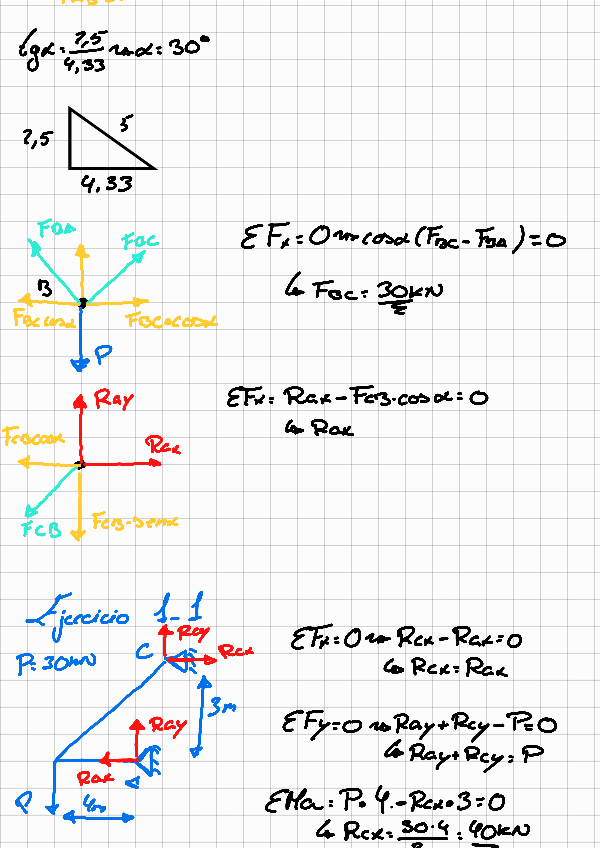 tgα = 2,5/4,33 → α = 30°
2,5
5
4,33
FBA
FBC
B
FBC cosα
FBC·cosα
P
ΣFx = 0 → cosα (FBC - FBA) = 0
↳ FBC = 30kN
Ray
FCB cosα
Rax
FCB
FCB·senα
ΣFx = Rax - FCB·cosα = 0
↳ Rax
Ejercicio 1_1
P = 30kN
Rcy
C
Rcx
3m
Ray
Rax
A
P
4m
ΣFx = 0 → Rcx - Rax = 0
↳ Rcx = Rax
ΣFy = 0 → Ray + Rcy - P = 0
↳ Ray + Rcy = P
ΣMa = P·4 - Rcx·3 = 0
↳ Rcx = 30·4/3 = 40kN